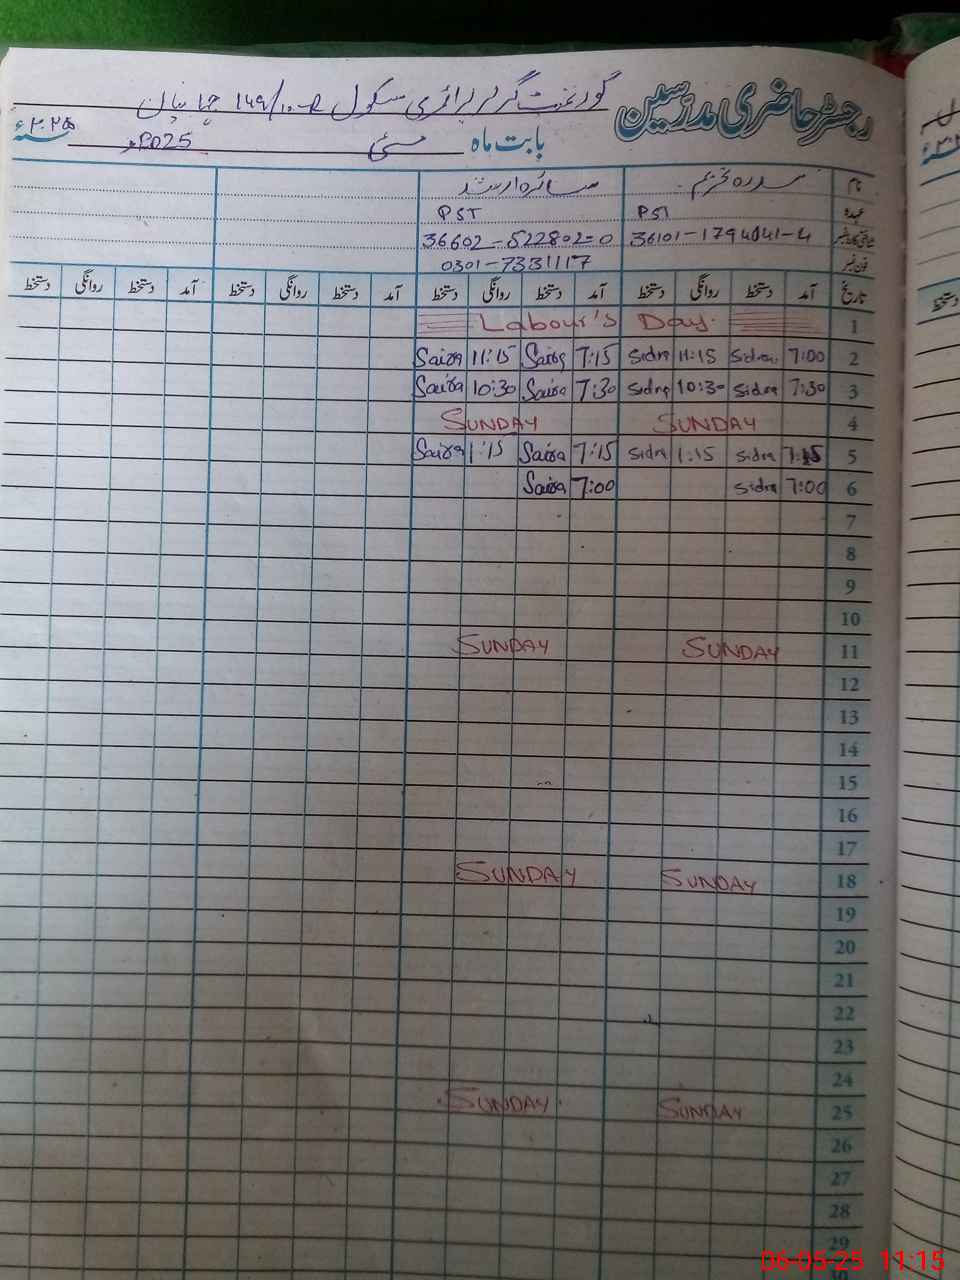 رجسٹر حاضری مدرسین گورنمنٹ گرلز پرائمری سکول 149/10-R جہانیاں
بابت ماہ مئی 2025ء ۲۰۲۵ سنہء
نام سدرہ تحریم سائرہ ارشد
عہدہ PST PST
شناختی کارڈ نمبر 36101-1794041-4 36602-522802-0
فون نمبر 0301-7331117
تاریخ آمد دستخط روانگی دستخط آمد دستخط روانگی دستخط آمد دستخط روانگی دستخط آمد دستخط روانگی دستخط
1 Labour's Day.
2 7:00 Sidra 11:15 Sidra 7:15 Saira 11:15 Saira
3 7:30 Sidra 10:30 Sidra 7:30 Saira 10:30 Saira
4 SUNDAY SUNDAY
5 7:15 Sidra 1:15 Sidra 7:15 Saira 1:15 Saira
6 7:00 Sidra 7:00 Saira
7
8
9
10
11 SUNDAY SUNDAY
12
13
14
15
16
17
18 SUNDAY SUNDAY
19
20
21
22
23
24
25 SUNDAY SUNDAY
26
27
28
29
06-05-25 11:15